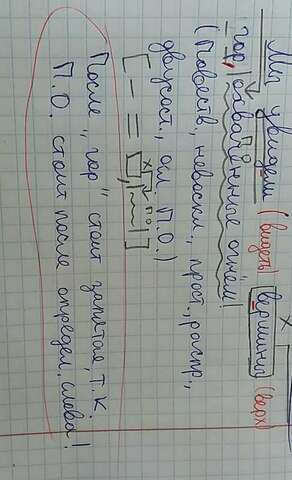 Мы увидели (видеть) вершины (верх)
гор, охваченные огнём.
(Повеств., невоскл., прост., распр.,
двусост., осл. П.О.)
[- = □, |~~|]
После "гор" стоит запятая, т.к.
П.О. стоит после определ. слова!